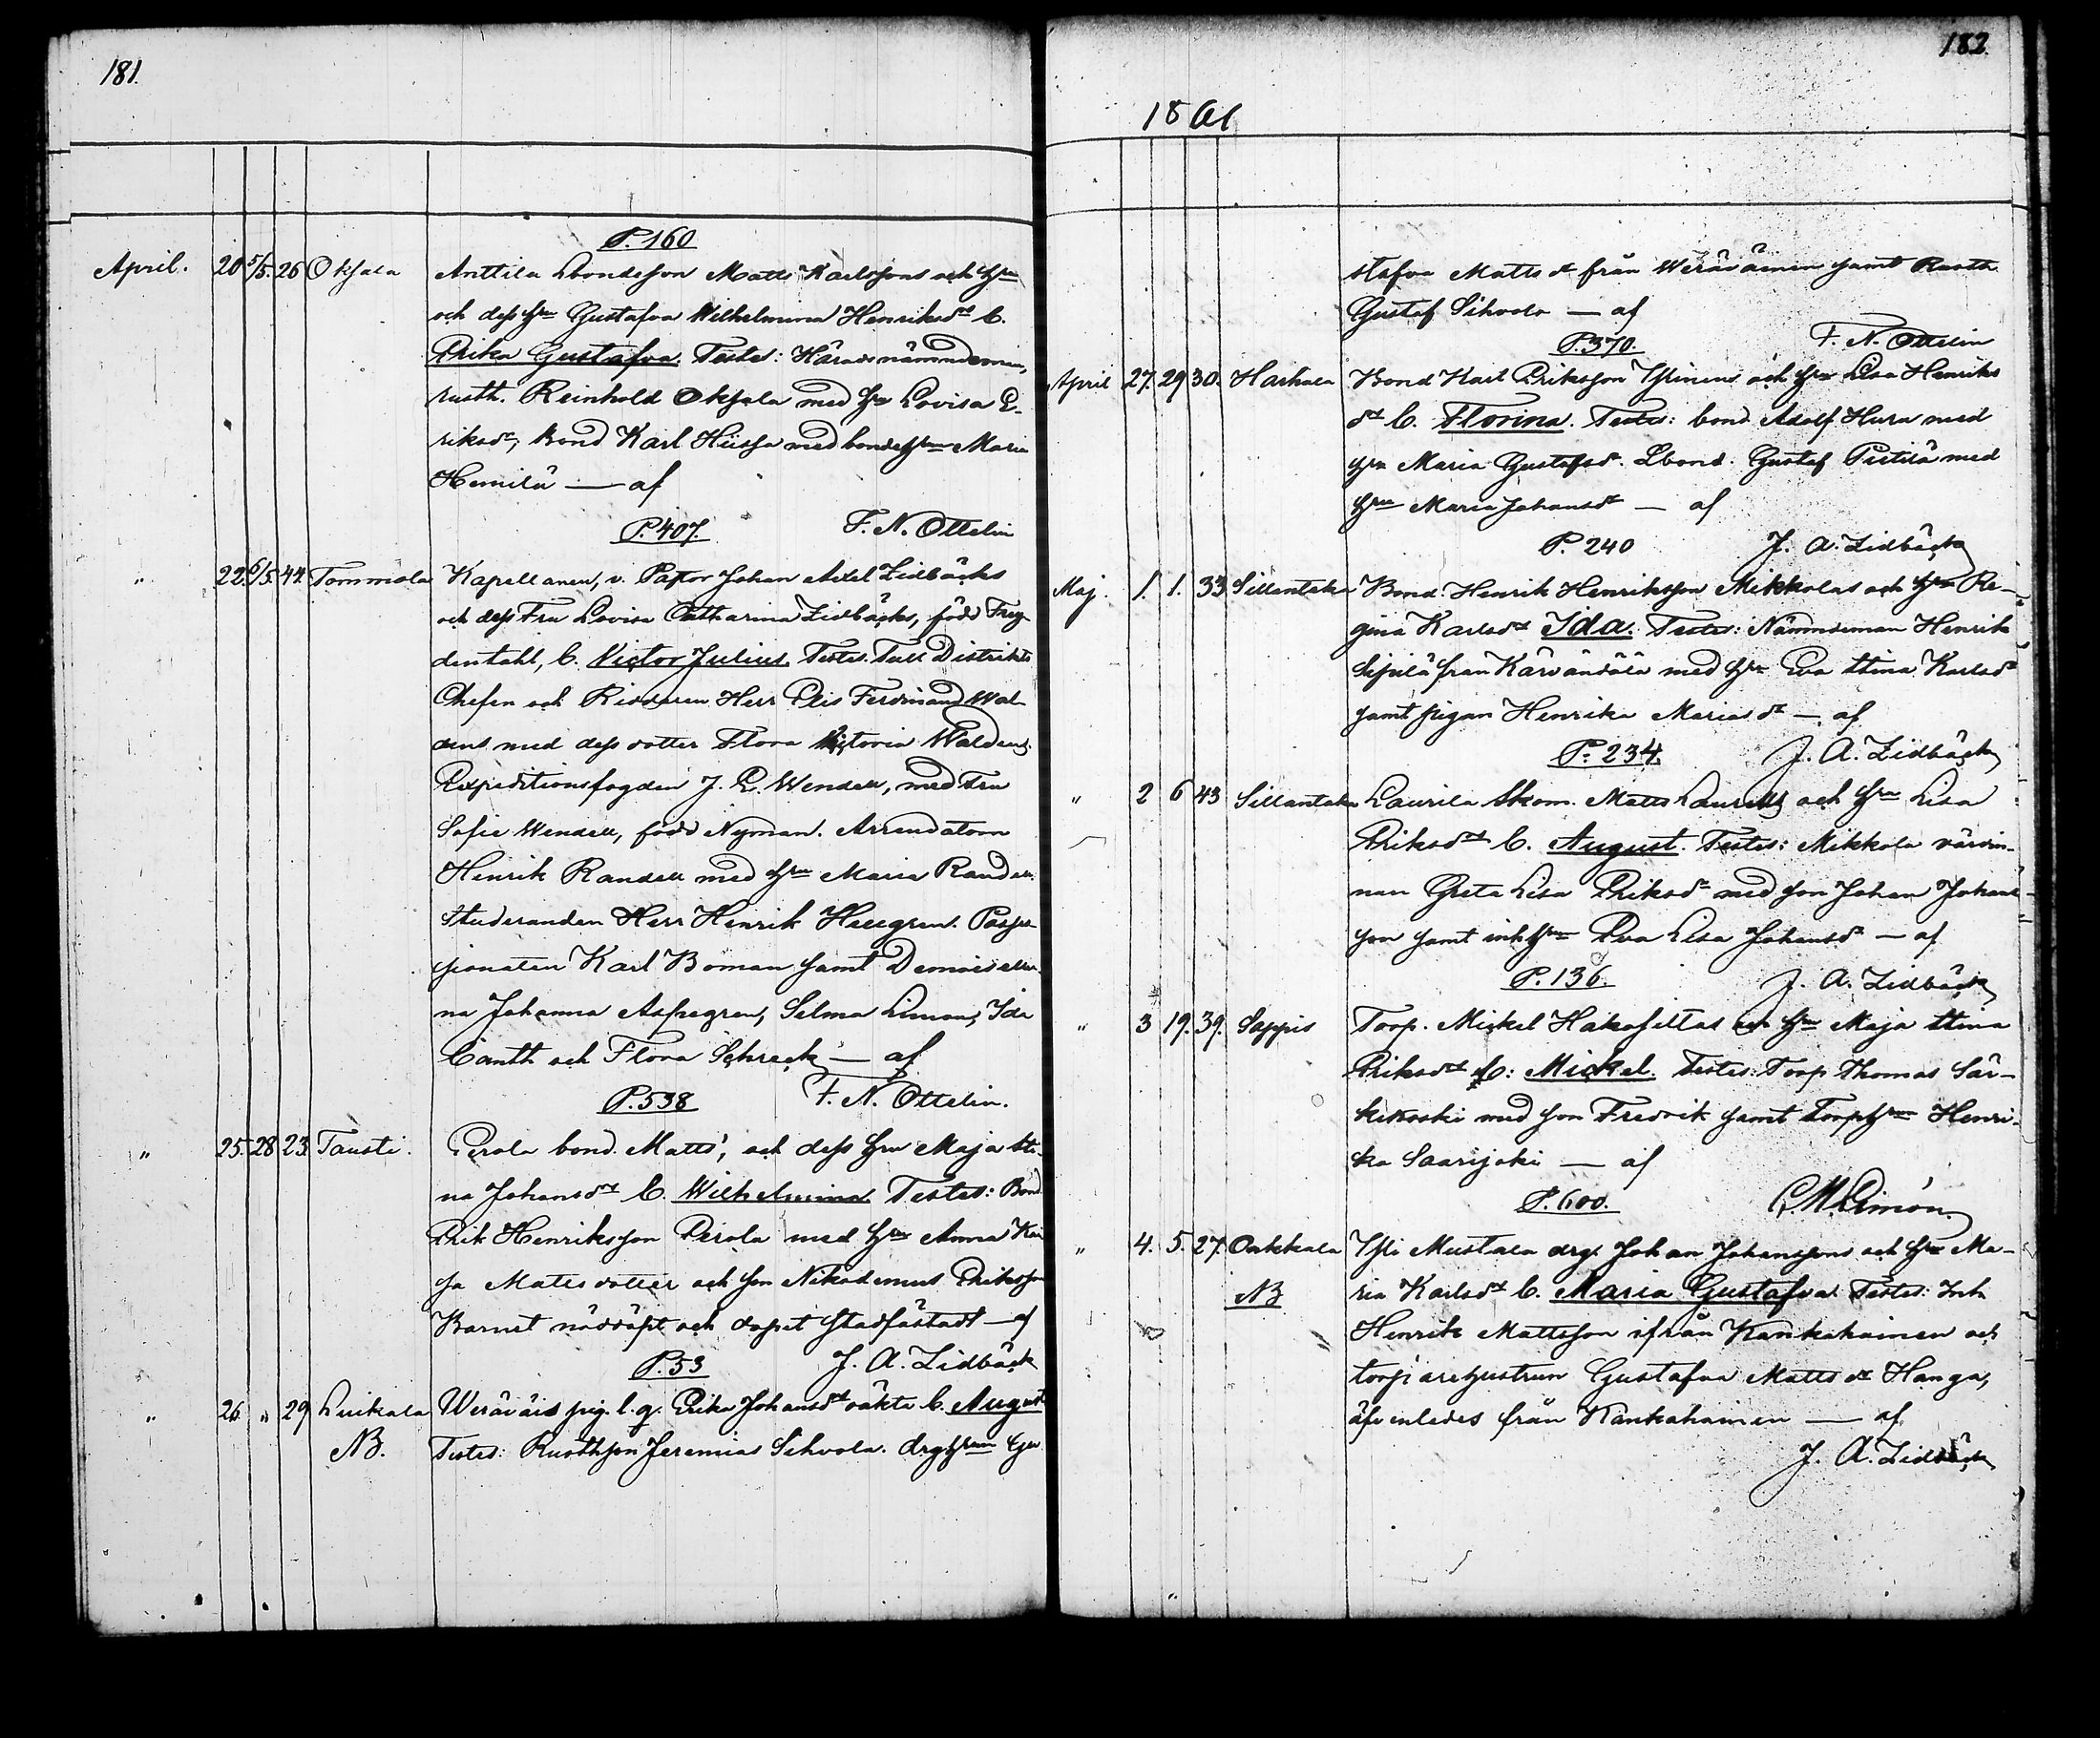 181.
P. 160
April. 20 5/5. 26 Okssala Anttila Lbondesson Matts Karlssons och Hru
och dess Hru Gustafva Wilhelmina Henriksdr b.
Erika Gustafva. Testes: Häradsnämndeman,
rusth. Reinhold Oksala med Hru Lovisa E-
riksdr, Bond Karl Hiissa med bondehru Maria
Hemilä — af
P. 407. F. N. Ottelin
" 22. 6/5. 44. Tommola Kapellanen, v. Pastor Johan Axel Lidbäcks
och dess Fru Lovisa Catharina Lidbäcks, född Frey-
dentahl, b. Victor Julius. Testes. Tull Distrikts
Chefen och Riddaren Herr Elis Ferdinand Wal-
dens med dess dotter Flora Victoria Waldens.
Expeditionsfogden J. E. Wendell, med Fru
Sofie Wendell, född Nyman. Arrendatorn
Henrik Randell med Hru Maria Randell.
Studeranden Herr Henrik Hellgren.
Karl Boman samt Demoiseller-
na Johanna Aspegren, Selma Liman, Ida
Canth och Flora Schreck — af
P. 538 F. N. Ottelin.
" 25. 28 23. Tausti. Perola bond. Matts', och dess Hru Maja Sti-
na Johansdr b. Wilhelmina. Testes: Bond
Erik Henriksson Perola med Hru Anna Kai-
sa Matts dotter och son Nikodemus Eriksson
Barnet nöddöpt och dopet stadfästadt — af
P. 53 J. A. Lidbäck
" 26. " 29 Luikala Weräväis pig. l. q. Erika Johansdr oäkta b. August
NB. Testes: Rusthson Jeremias Sihvola. drghrun Gu-
182.
1861
stafva Matts dr från Weräväinen samt Rusth
Gustaf Sihvola — af
P. 370. F. N. Ottelin
April 27. 29 30. Harhala Bond Karl Eriksson och Hru Lisa Henriks
dr b. Florina. Testes: bond Adolf Huru med
Hru Maria Gustafsdr. Lbond. Gustaf Pietilä med
Hru Maria Johansdr — af
P. 240 J. A. Lidbäck
Maj. 1. 1. 33 Sillantaka Bond. Henrik Henriksson Mikkolas och Hru Re-
gina Karlsdr Ida. Testes: Nämndeman Henrik
Sipilä från Kärväntälä med Hru Eva Stina Karlsdr
samt pigan Henrika Mariasdr — af
P. 234. J. A. Lidbäck
" 2 6 43 Sillantaka Laurila Skom. Matts Laurells och Hru Lisa
Eriksdr b. August. Testes: Mikkola värdin-
nan Greta Lisa Eriksdr med son Johan Johans-
son samt inhhru Eva Lisa Johansdr — af
P. 136. J. A. Lidbäck
" 3 19. 39. Sappis Torp. Mickel Hakosillas och Hru Maja Stina
Eriksdr b: Mickel. Testes: Torp Thomas Sär-
kikoski med son Fredrik samt Torphru Henri-
ka Saarijoki — af
P. 600.
" 4. 5. 27. Oukkala Yli Mustala drg. Johan Johanssons och Hru Ma-
NB ria Karlsdr b. Maria Gustafva. Testes: Inh
Henrik Mattsson ifrån Kankahainen och
torparehustrun Gustafva Matts dr Hanga,
äfvenledes från Kankahainen — af
J. A. Lidbäck